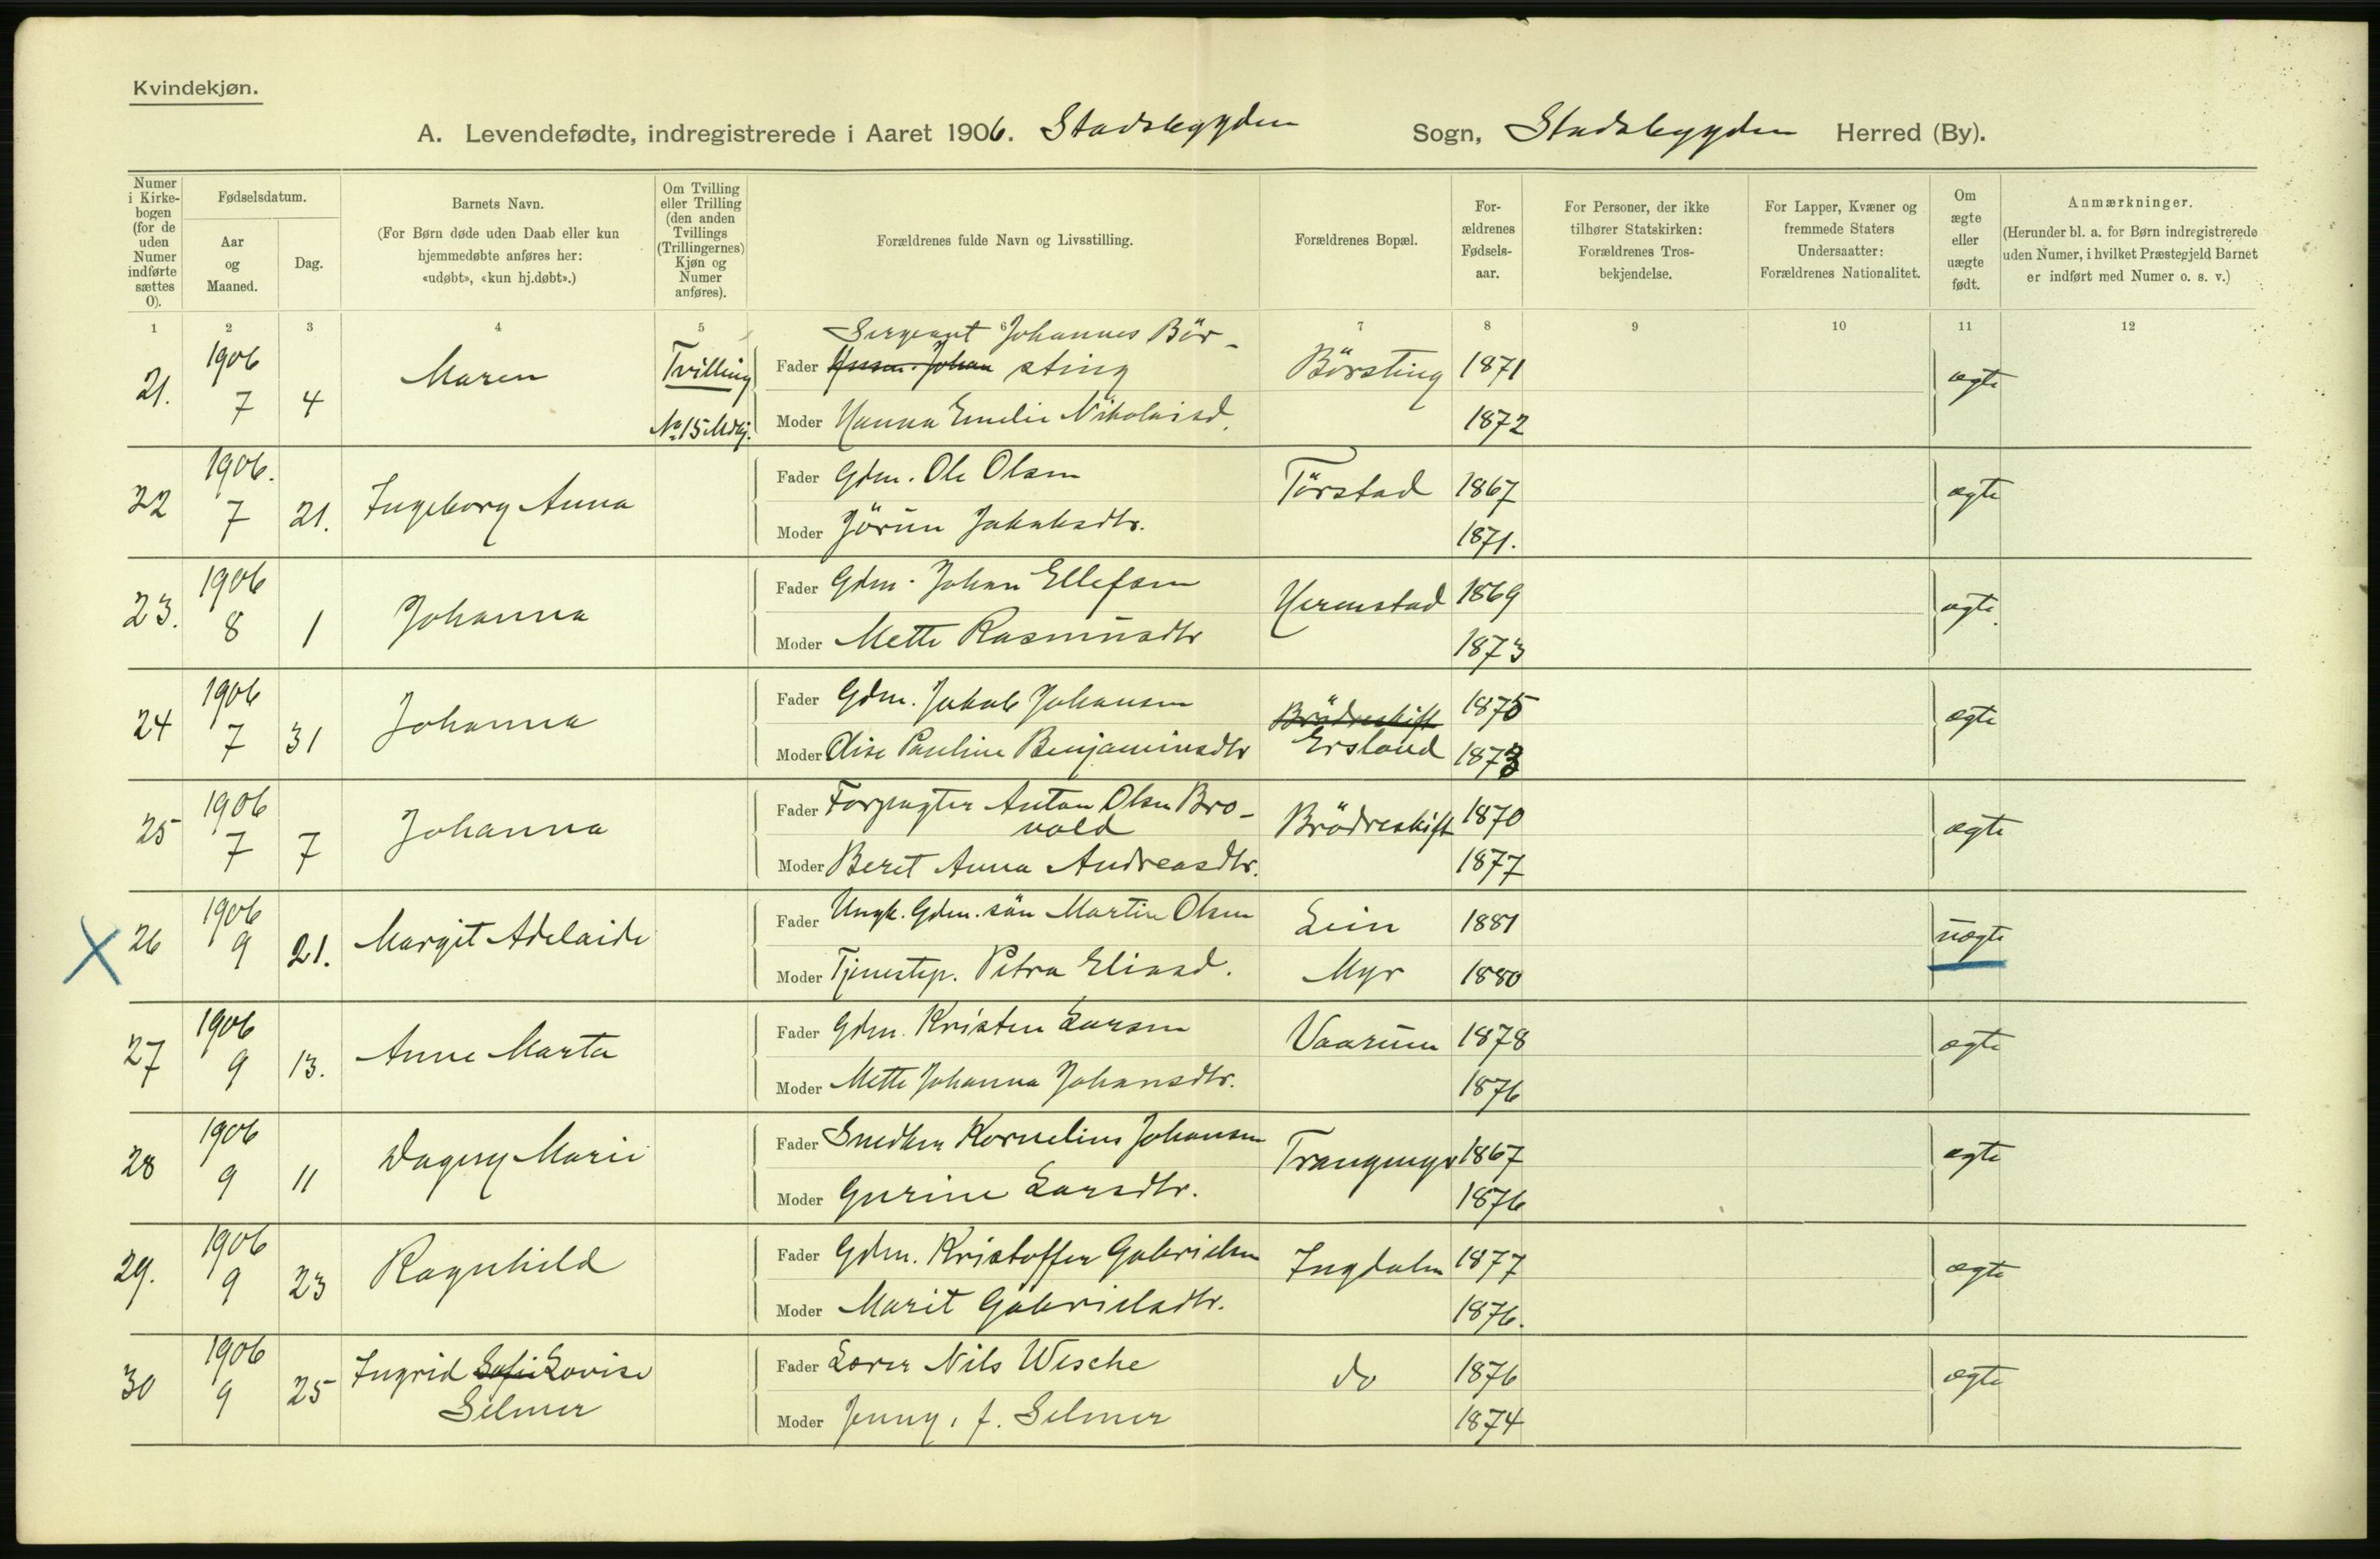 Kvindekjøn.
A. Levendefødte, indregistrerede i Aaret 1906. Stadsbygden Sogn, Stadsbygden Herred (By).
Numer i Kirkebogen (for de uden Numer indførte sættes 0).
Fødselsdatum.
Aar og Maaned.
Dag.
Barnets Navn.
(For Børn døde uden Daab eller kun hjemmedøbte anføres her: «udøbt», «kun hj.døbt».)
Om Tvilling eller Trilling (den anden Tvillings (Trillingernes) Kjøn og Numer anføres).
Forældrenes fulde Navn og Livsstilling.
Forældrenes Bopæl.
Forældrenes Fødselsaar.
For Personer, der ikke tilhører Statskirken: Forældrenes Trosbekjendelse.
For Lapper, Kvæner og fremmede Staters Undersaatter: Forældrenes Nationalitet.
Om ægte eller uægte født.
Anmærkninger.
(Herunder bl. a. for Børn indregistrerede uden Numer, i hvilket Præstegjeld Barnet er indført med Numer o. s. v.)
1 2 3 4 5 6 7 8 9 10 11 12
21. 1906 7 4 Maren Tvilling No 15 Mdkj.
Sergeant Johannes Bör-
Fader Johan sting Börsting 1871 ægte
Moder Hanna Emelie Nikolaisd. 1872
22 1906. 7 21. Ingeborg Anna
Fader Gdm. Ole Olsen Törstad 1867 ægte
Moder Jörun Jakobsdtr. 1871.
23. 1906 8 1 Johanna
Fader Gdm. Johan Ellefsen Hermstad 1869 ægte.
Moder Mette Rasmusdtr 1873
24 1906 7 31 Johanna
Fader Gdm. Jakob Johansen Brödreskift 1875 ægte
Moder Elise Pauline Benjaminsdtr Ersland 1873
25 1906 7 7 Johanna
Fader Forpagter Anton Olsen Bro-
vold Brödreskift 1870 ægte
Moder Beret Anna Andreasdtr. 1877
26 1906 9 21. Margit Adelaide
Fader Ungk. Gdm. sön Martin Olsen Lein 1881 uægte
Moder Tjenestep. Petra Eliasd. Myr 1880
27 1906 9 13. Anne Marta
Fader Gdm. Kristen Larsen Vaarum 1878 ægte
Moder Mette Johanna Johansdtr. 1876
28 1906 9 11 Dagny Marie
Fader Snedker Kornelius Johansen Trangmyr 1867 ægte
Moder Gurine Larsdtr. 1876
29. 1906 9 23 Ragnhild
Fader Gdm. Kristoffer Gabrielsen Ingdalen 1877 ægte
Moder Marit Gabrielsdtr. 1876.
30 1906 9 25 Ingrid Sofie Lovise
Selmer
Fader Lærer Nils Wesche do 1876 ægte
Moder Jenny, f. Selmer 1874